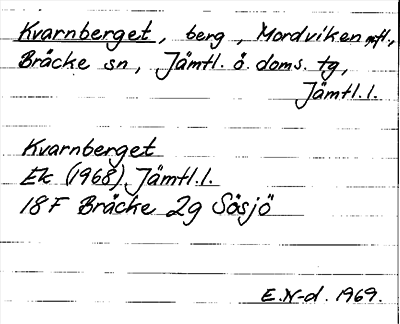 Kvarnberget, berg, Mordviken mfl.,
Bräcke sn, Jämtl. ö. doms. tg,
Jämtl.l.
Kvarnberget
Ek (1968) Jämtl.l.
18F Bräcke 2g Sösjö
E.N-d. 1969.